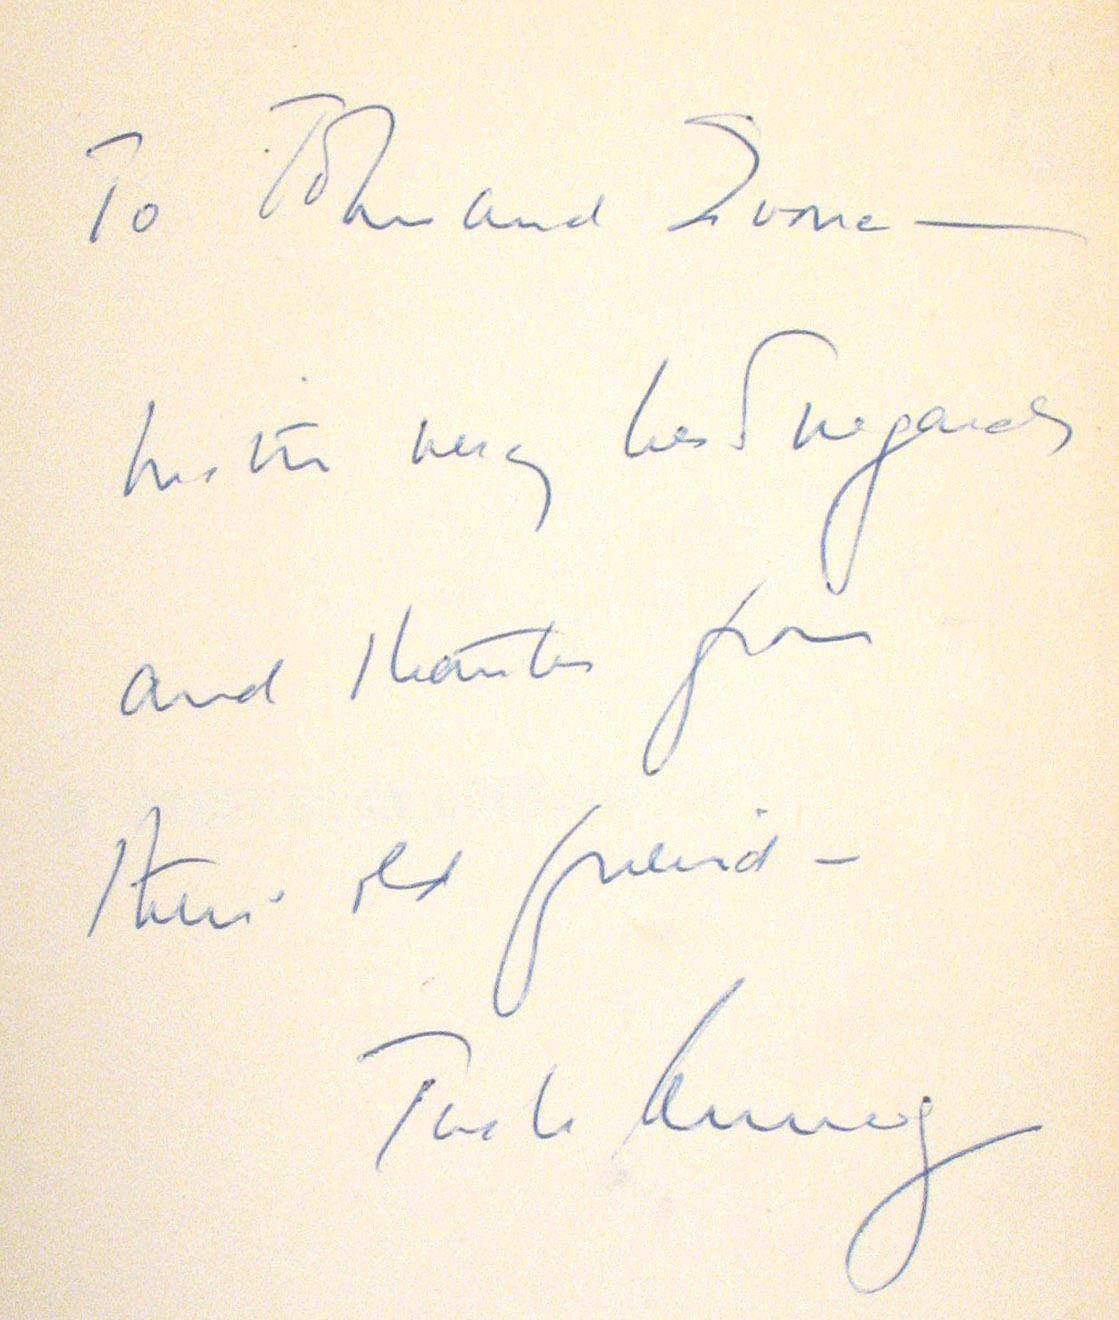 To John and —
with very best regards
and thanks from
their old friend —
Jack Kennedy